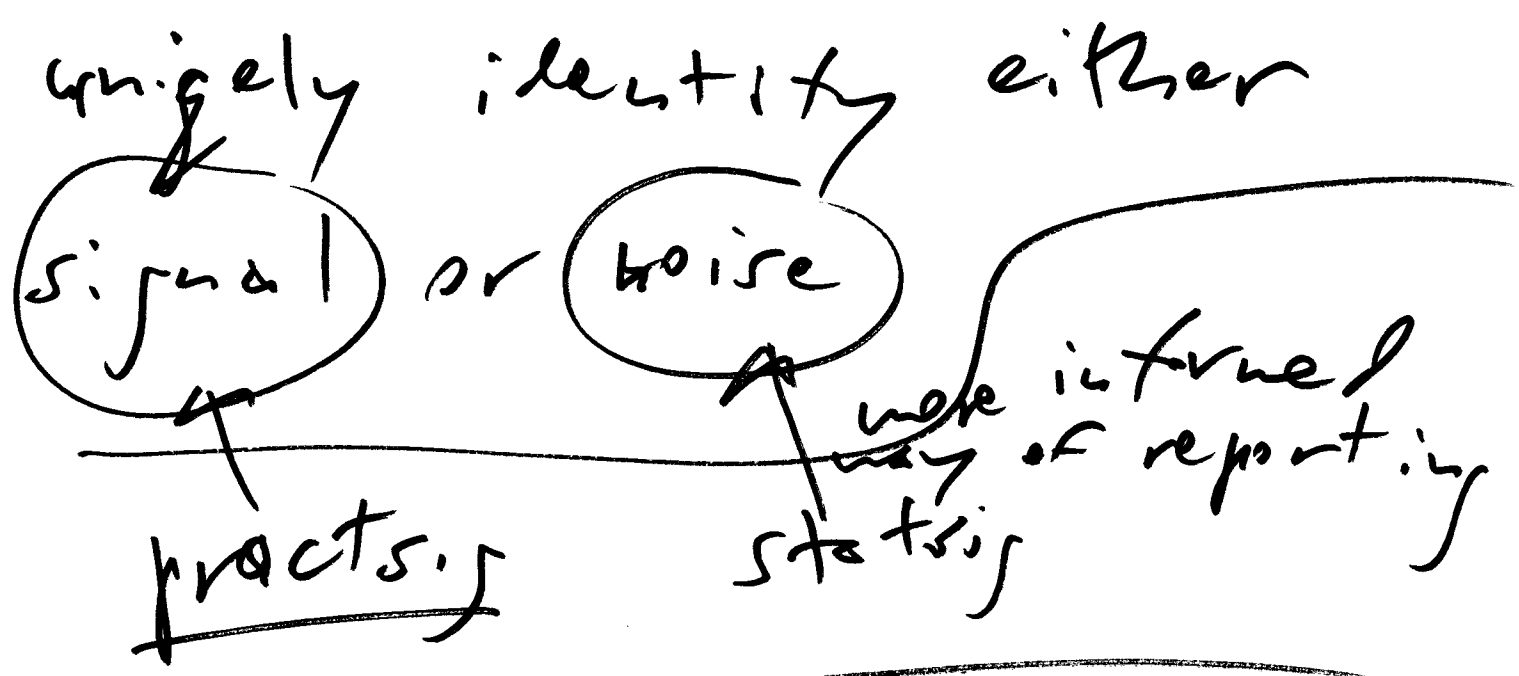 uniqely identify either
signal or noise
more informed
way of reporting
practsig statsig